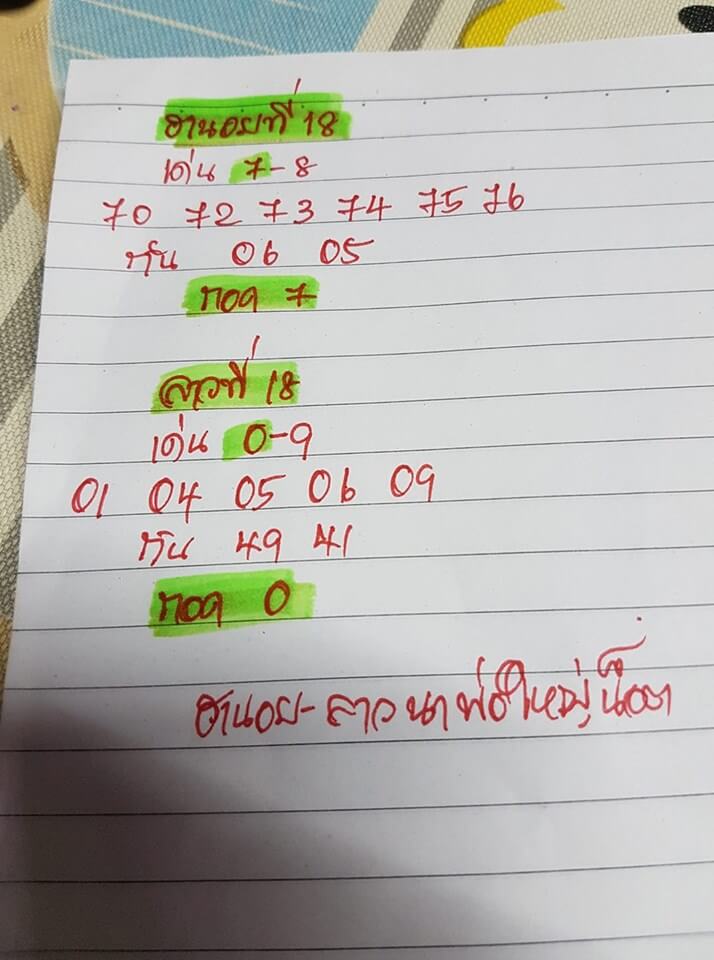 ฮานอยที่ 18
เด่น 7-8
70 72 73 74 75 76
กัน 06 05
กอด 7
ลาวที่ 18
เด่น 0-9
01 04 05 06 09
กัน 49 41
กอด 0
ฮานอย-ลาว นา พ่อใหญ่